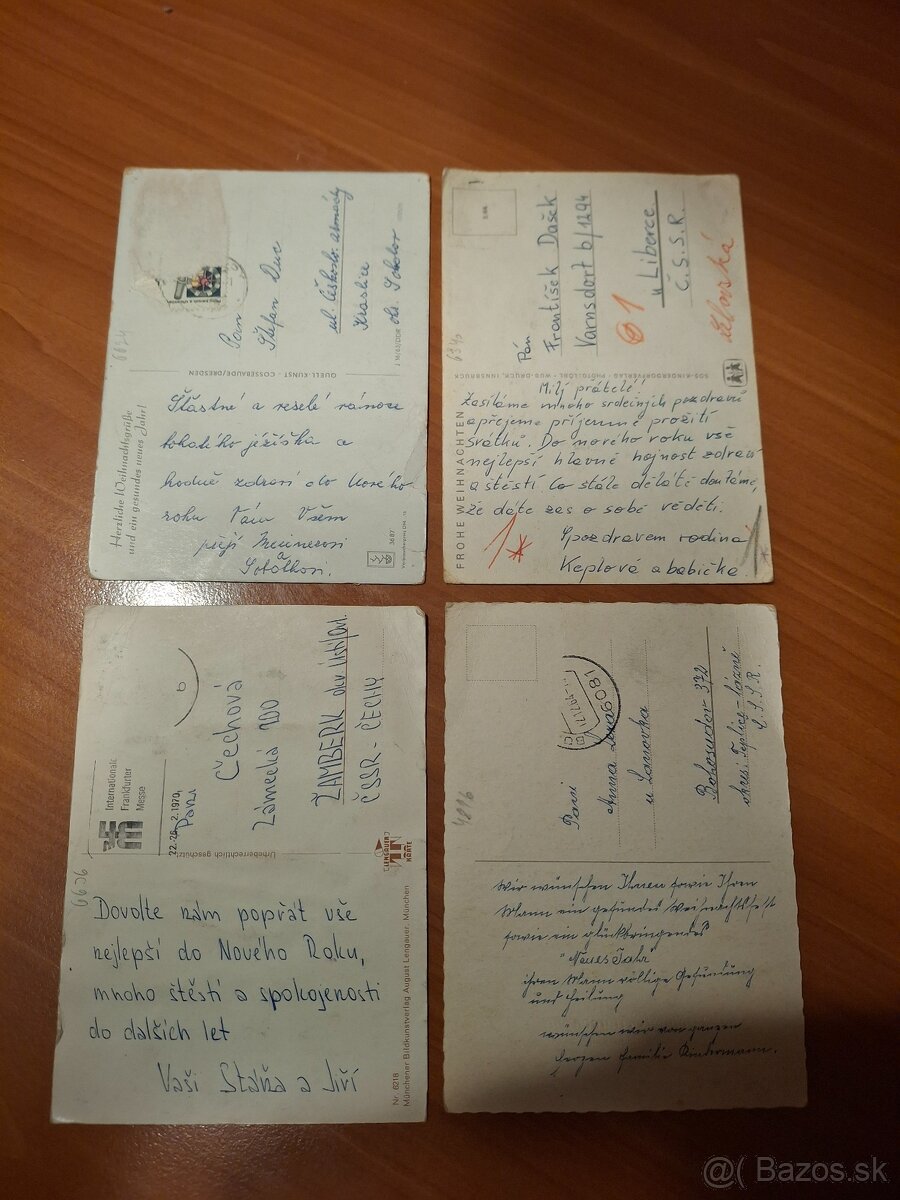 Herzliche Weihnachtsgrüße
und ein gesundes neues Jahr!
Pan
Štefan Duc
ul. Českoslov. armády
Kraslice
okr. Sokolov
QUELL-KUNST · COSSEBAUDE/DRESDEN
Šťastné a veselé vánoce
bohatého ježíška a
hodně zdraví do Nového
roku Vám Všem
přejí
a
3687
FROHE WEIHNACHTEN
Pán
František Dašek
Varnsdorf b/1294
u Liberce
Č.S.S.R.
SOS-KINDERDORFVERLAG · PHOTO: LÖHL · WUB-DRUCK, INNSBRUCK
Milý přátelé!
Zasíláme mnoho srdečných pozdravů
a přejeme příjemné prožití
svátků. Do nového roku vše
nejlepší hlavně hojnost zdraví
a štěstí Co stále děláte doufáme,
že dáte zas o sobě věděti.
S pozdravem rodina
Keplová a babička.
Internationale
Frankfurter
Messe
22.-26. 2. 1970
Paní
Čechová
Zámecká 200
ŽAMBERK okr. Ústí/Orl.
ČSSR - ČECHY
Urheberrechtlich geschützt
LENGAUER
KARTE
6636
Dovolte nám popřát vše
nejlepší do Nového Roku,
mnoho štěstí a spokojenosti
do dalších let
Vaši Stáňa a Jiří
Nr. 6218
Münchener Bildkunstverlag August Lengauer, München
6081
Paní
Anna
Bohosudov 372
okres Teplice-Lázně
Č.S.S.R.
Wir wünschen Ihnen sowie Ihren
Mann ein gesundes Weihnachtsfest
sowie ein glückbringendes
"Neues Jahr"
ihren Mann völlige Gesundung
und Heilung
wünschen wir von ganzen
Herzen Familie Kindermann.
@( Bazos.sk